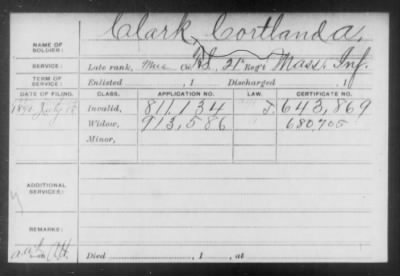 Clark, Cortland A.
NAME OF SOLDIER:
SERVICE: Late rank, Mus Co. H, 21" Reg't Mass. Inf.
TERM OF SERVICE: Enlisted , 1 Discharged , 1
DATE OF FILING. CLASS. APPLICATION NO. LAW. CERTIFICATE NO.
1890 July Invalid, 811,134 J. 643,869
Widow, 913,586 680,705
Minor,
ADDITIONAL SERVICES:
REMARKS:
Died , 1 , at